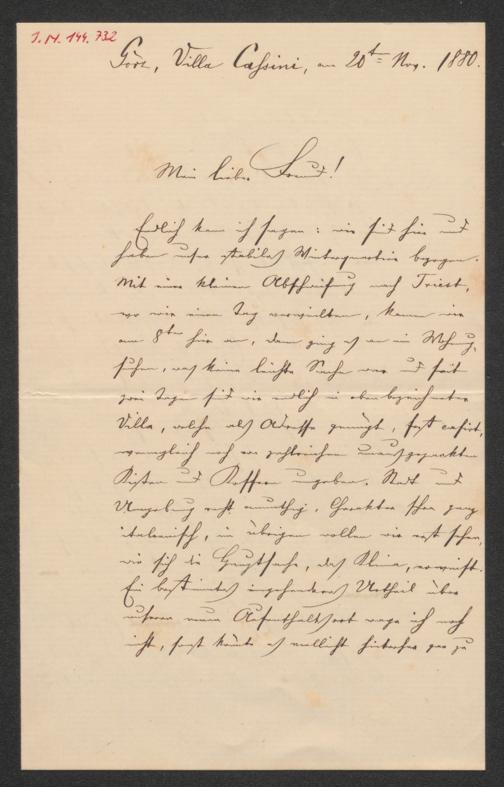 I.N. 144.732
Görz, Villa Cassini, am 20ten Nov. 1880.
Mein lieber Freund!
Endlich kann ich sagen: wir sind hier und
haben unser stabiles Winterquartier bezogen.
Mit einer kleinen Abschweifung nach Triest,
wo wir einen Tag verweilten, kamen wir
am 8ten hier an, dann ging es an ein Wohnung
suchen, was keine leichte Sache war und seit
zwei Tagen sind wir endlich in obenbezeichneter
Villa, welche als Adresse genügt, fest casirt,
wenngleich noch von zahlreichen unausgepackten
Kisten und Koffern umgeben. Stadt und
Umgebung recht anmuthig, Charakter schon ganz
italienisch, im übrigen wollen wir erst sehen,
wie sich die Hauptsache, das Klima, erweist.
Ein bestimmtes eingehendes Urtheil über
unseren neuen Aufenthaltsort wage ich noch
nicht, sonst könnte es vielleicht hinterher gar zu